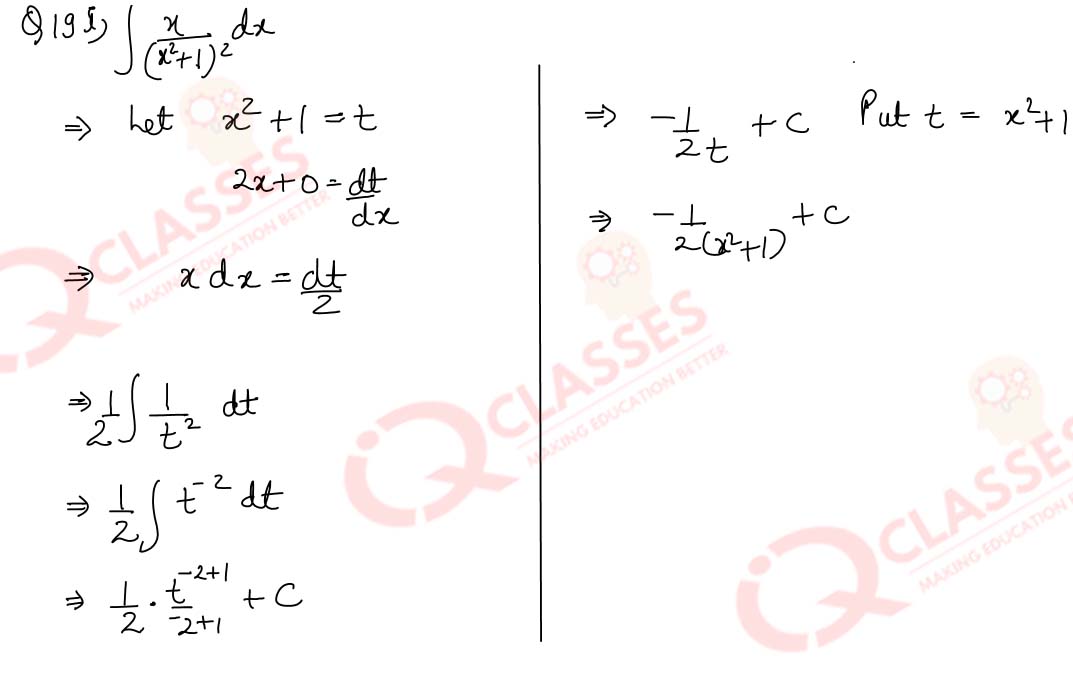 Q 19 I) ∫ x/(x²+1)² dx
⇒ Let x² + 1 = t
2x + 0 = dt/dx
⇒ x dx = dt/2
⇒ 1/2 ∫ 1/t² dt
⇒ 1/2 ∫ t⁻² dt
⇒ 1/2 · t⁻²⁺¹/-2+1 + C
⇒ -1/2t + C Put t = x²+1
⇒ -1/2(x²+1) + C
IQ CLASSES
MAKING EDUCATION BETTER
IQ CLASSES
MAKING EDUCATION BETTER
IQ CLASSES
MAKING EDUCATION